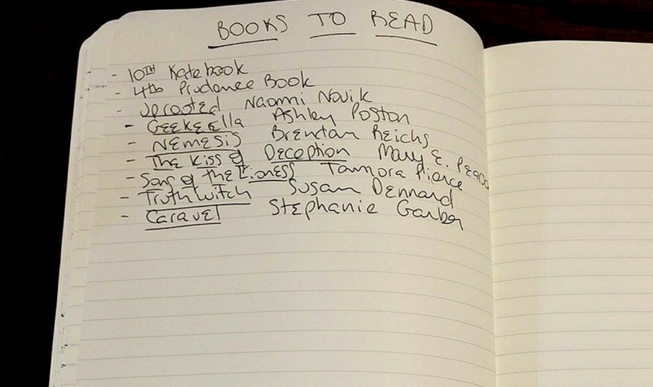 BOOKS TO READ
- 10TH Kate book
- 4th Prudence Book
- Uprooted Naomi Novik
- Geekerella Ashley Poston
- NEMESIS Brendan Reichs
- The Kiss of Deception Mary E. Pearso
- Song of the Lioness Tamora Pierce
- Truthwitch Susan Dennard
- Caravel Stephanie Garber